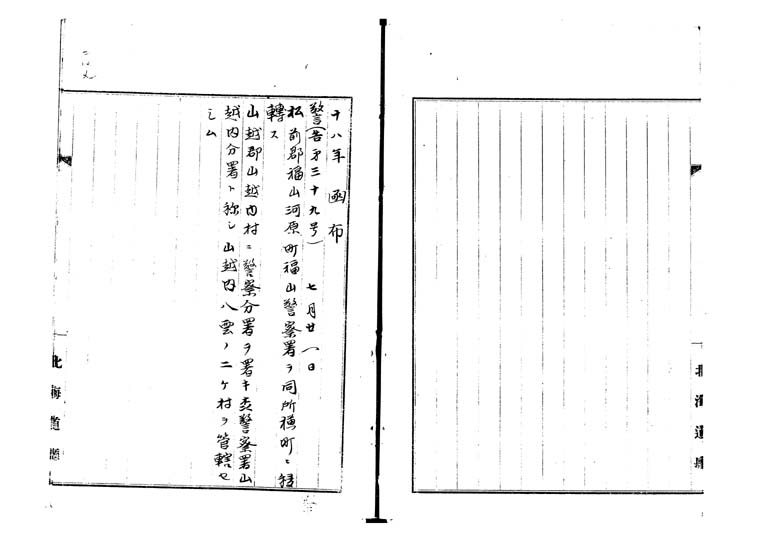 十八年 函布
警(告第三十九号) 七月廿一日
松前郡福山河原町福山警察署ヲ同所横町ニ移
轉ス
山越郡山越内村ニ警察分署ヲ署キ 警察署山
越内分署ト称シ山越内八雲ノ二ケ村ヲ管轄セ
シム
北海道廳
北海道廳